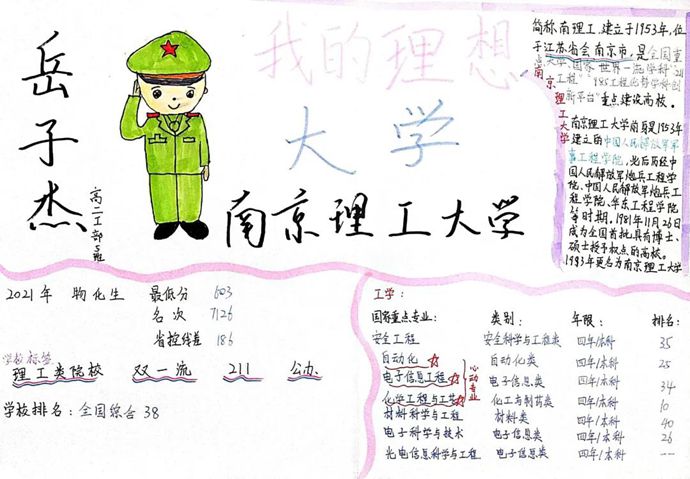 岳子杰
高二工部5班
我的理想
大学
南京理工大学
简称南理工,建立于1953年,位
于江苏省会南京市,是全国重
点大学,国家"世界一流学科""211
工程""985工程优势学科创
新平台"重点建设高校。
南京理工大学
南京理工大学前身是1953年
建立的中国人民解放军军
事工程学院,此后历经中
国人民解放军炮兵工程学
院、中国人民解放军炮兵工
程学院、华东工程学院
等时期。1981年11月26日
成为全国首批具有博士、
硕士授予权点的高校。
1993年更名为南京理工大学
2021年 物化生 最低分 603
名次 7126
省控线差 186
学校标签
理工类院校 双一流 211 公办
学校排名:全国综合38
工学:
国家重点专业: 类别: 年限: 排名:
安全工程 安全科学与工程类 四年/本科 35
自动化 自动化类 四年/本科 25
电子信息工程 电子信息类 四年/本科 34
化学工程与工艺 化工与制药类 四年/本科 10
心动专业
材料科学与工程 材料类 四年/本科 40
电子科学与技术 电子信息类 四年/本科 26
光电信息科学与工程 电子信息类 四年/本科 ---